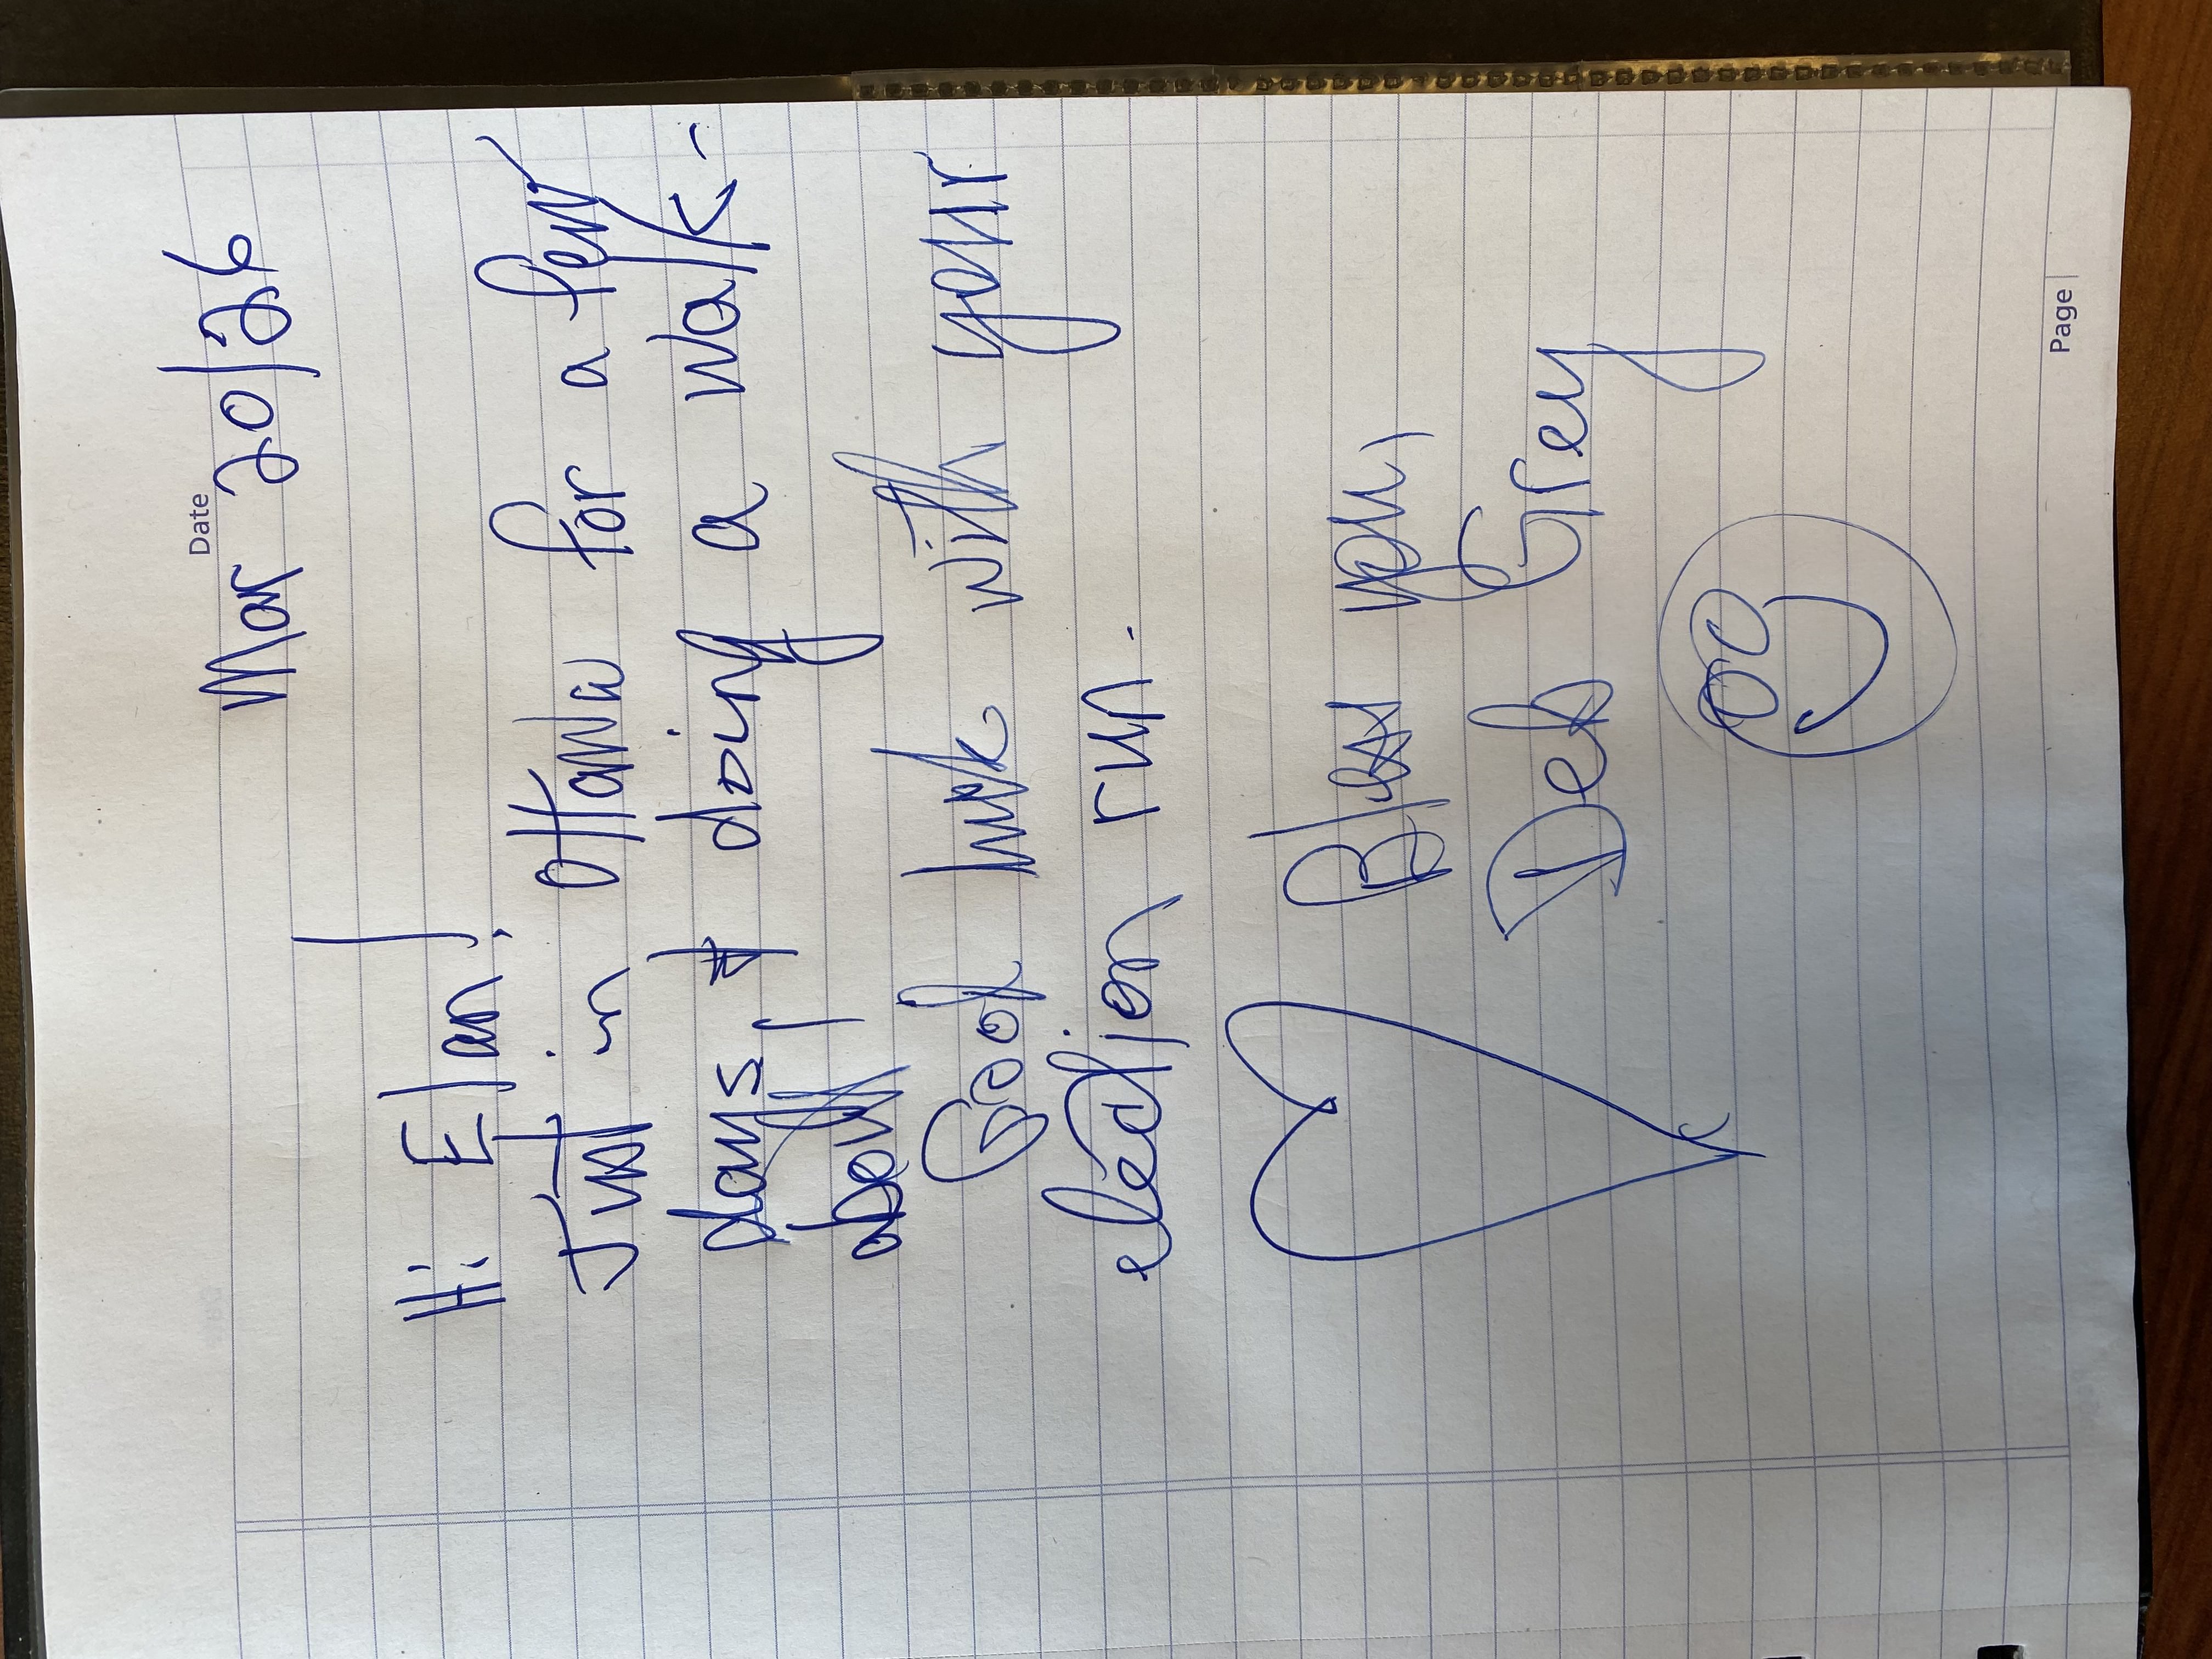 Date
Mar 20/26
Hi Elan!
Just in Ottawa for a few
days, & doing a walk-
about
Good luck with your
election run.
Bless you,
Deb Grey
Page